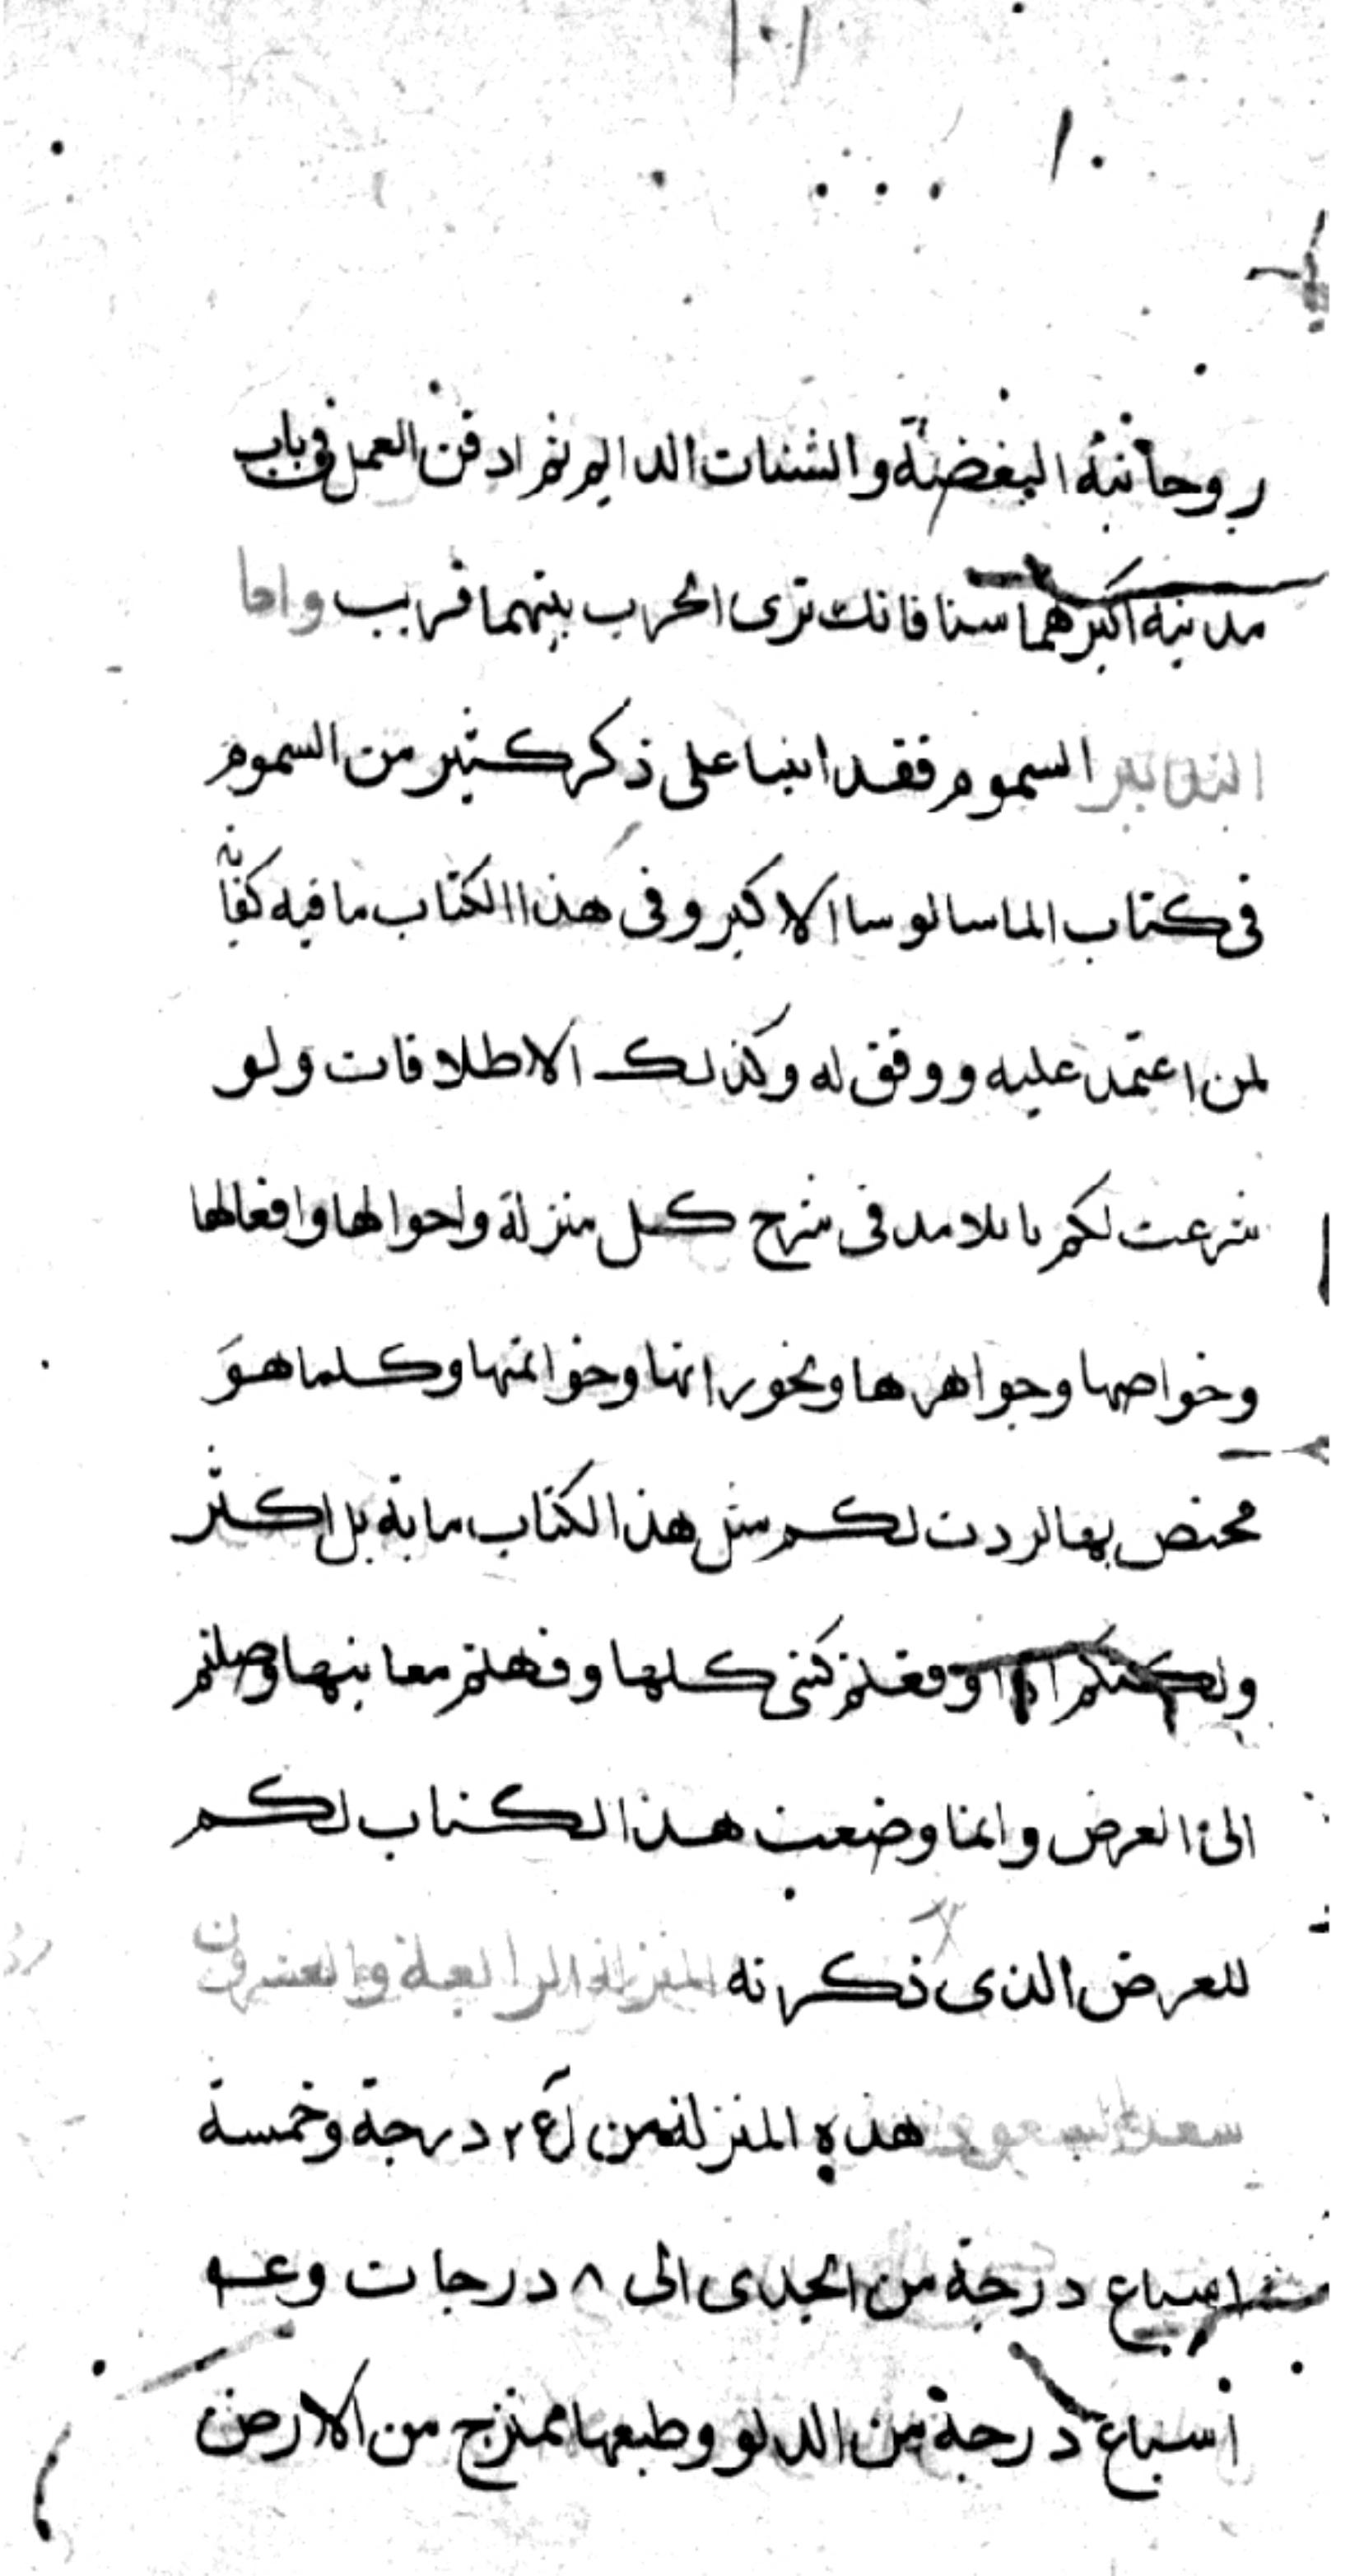 روحانية البغضة والشتات الدايم ثم ادفن العمل في باب
مدينة اكبرهما سنا فانك ترى الحرب بينهما قريب واما
التدابير السموم فقد اتينا على ذكر كثير من السموم
في كتاب الماسالوسا الاكبر وفى هذا الكتاب ما فيه كفاية
لمن اعتمد عليه ووفق له وكذلك الاطلاقات ولو
شرعت لكم يا تلامد فى شرح كل منزلة واحوالها وافعالها
وخواصها وجواهرها وبخوراتها وخواتمها وكلما هو
مختص بها لزدت لكم مثل هذا الكتاب ماية بل اكثر
ولكنكم اذا وقفتم كتبى كلها وفهمتم معانيها وصلتم
الى العرض وانما وضعت هذا الكتاب لكم
للعرض الذى ذكرته المنزلة الرابعة والعشرون
سعد السعود هذه المنزلة من ٢٥ درجة وخمسة
اسباع درجة من الجدى الى ٨ درجات و
اسباع درجة من الدلو وطبعها ممتزج من الارض